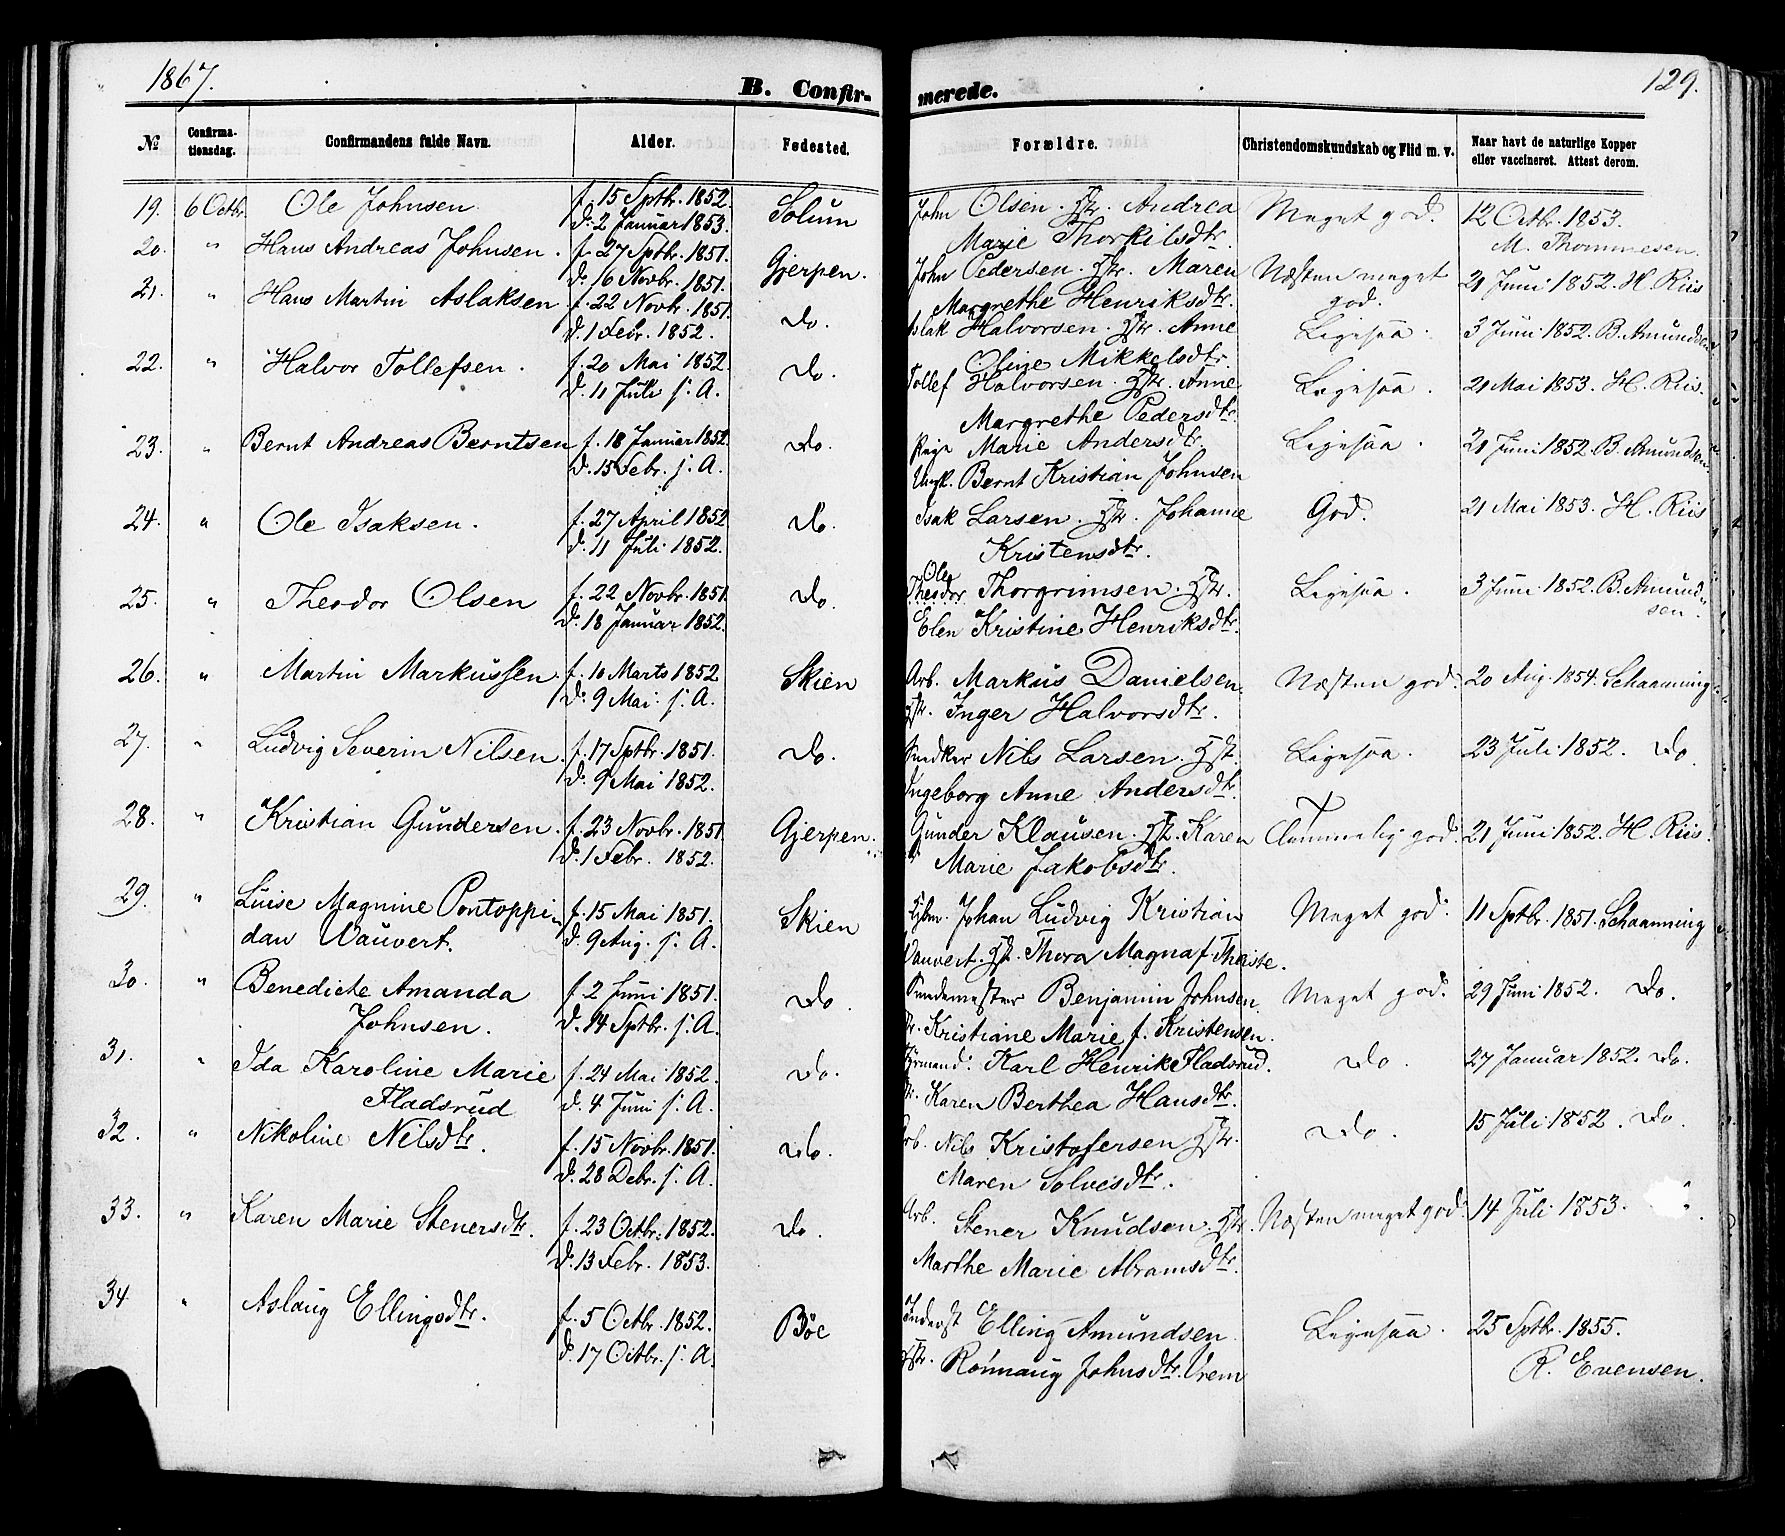 1867.
129.
B. Confir-
merede.
№
Confirma-
tionsdag.
Confirmandens fulde Navn.
Alder.
Fødested.
Forældre.
Christendomskundskab og Flid m. v.
Naar havt de naturlige Kopper
eller vaccineret. Attest derom.
19. 6 Octbr. Ole Johnsen f. 15 Sptbr. 1852. Solum John Olsen Andrea Meget g D. 12 Octbr. 1853.
D. 2 Januar 1853. Marie Thorkilsdtr. M. Thommesen
20. " Hans Andreas Johnsen. f. 27 Sptbr. 1851. Gjerpen. John Pedersen. Maren Næsten meget 21 Juni 1852. H. Riis
D. 16 Novbr. 1851. Margrethe Henriksdtr. god.
21. " Hans Martin Aslaksen f. 22 Novbr. 1851. Do. Aslak Halvorsen. Anne Ligesaa. 3 Juni 1852. B. Amundsen
D. 1 Febr. 1852. Oline Mikkelsdtr.
22. " Halvor Tollefsen. f. 20 Mai 1852. Do. Tollef Halvorsen. Anne Ligesaa. 21 Mai 1853. H. Riis.
D. 11 Juli s. A. Margrethe Pedersdtr.
23. " Bernt Andreas Berntsen f. 18 Januar 1852. Do. Pige Marie Andersdtr. Ligesaa. 21 Juni 1852. B. Amundsen
D. 15 Febr. s. A. Ungk. Bernt Kristian Johnsen
24. " Ole Isaksen. f. 27 April 1852 Do. Isak Larsen. Johanne God. 21 Mai 1853. H. Riis
D. 11 Juli 1852. Kristensdtr.
Ole
25. " Theodor Olsen f. 22 Novbr. 1851. Do. Theodor Thorgrimsen. Ligesaa. 3 Juni 1852. B. Amund-
D. 18 Januar 1852. Elen Kristine Henriksdtr. sen.
26. " Martin Markussen. f. 10 Marts 1852 Skien Arb. Markus Danielsen. Næsten god. 20 Aug. 1854. Schaanning
D. 9 Mai s. A. Inger Halvorsdtr.
27. " Ludvig Severin Nilsen. f. 17 Sptbr. 1851. Do. Snedker Nils Larsen. Ligesaa. 23 Juli 1852. Do
D. 9 Mai 1852. Ingeborg Anne Andersdtr.
28. " Kristian Gundersen. f. 23 Novbr. 1851 Gjerpen. Gunder Klausen. Karen Temmelig god. 21 Juni 1852. H. Riis.
D. 1 Febr. 1852. Marie Jakobsdtr.
29. " Luise Magnine Pontoppi- f. 15 Mai 1851. Skien Johan Ludvig Kristian Meget god. 11 Sptbr. 1851. Schaanning
dan Vauvert. D. 9 Aug. s. A. Vauvert. Thora Magna f. Theiste.
30. " Benedicte Amanda f. 2 Juni 1851. Do. Smedemester Benjamin Johnsen. Meget god. 29 Juni 1852. Do.
Johnsen. D. 14 Sptbr. s. A. Kristiane Marie f. Kristensen.
31. " Ida Karoline Marie f. 24 Mai 1852. Do. Styrmand: Karl Henrik Fladsrud. Do. 27 Januar 1852. Do.
Fladsrud D. 4 Juni s. A. Karen Berthea Hansdtr.
32. " Nikoline Nilsdtr. f. 15 Novbr. 1851. Do. Arb. Nils Kristofersen Do. 15 Juli 1852. Do.
D. 28 Debr. s. A. Maren Solvesdtr.
33. " Karen Marie Stenersdtr. f. 23 Octbr. 1852. Do. Arb. Stener Knudsen. Næsten meget god. 14 Juli 1853.
D. 13 Febr. 1853. Marthe Marie Abramsdtr.
34 " Aslaug Ellingsdtr. f. 5 Octbr. 1852. Böe Inderst Elling Amundsen Ligesaa. 25 Sptbr. 1855.
D. 17 Octbr. s. A. Rönnaug Johnsdtr. Vrem R. Evensen.